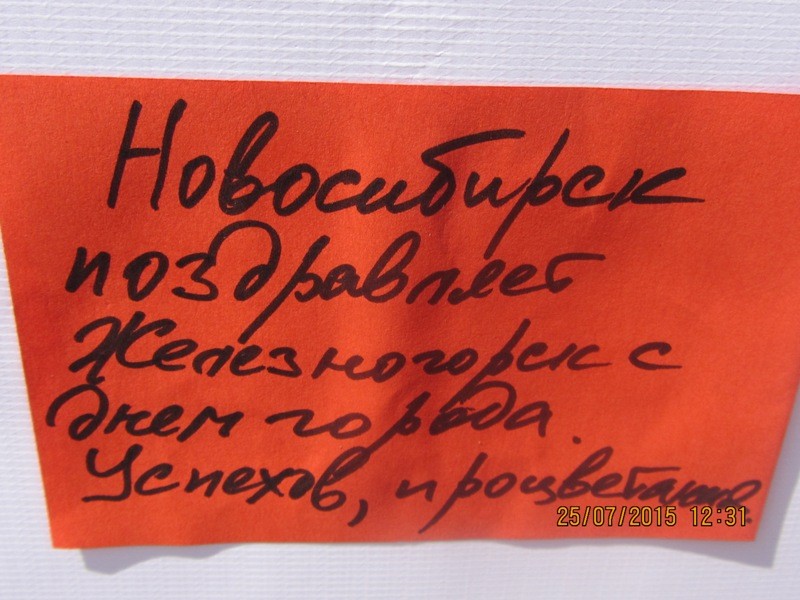 Новосибирск
поздравляет
Железногорск с
днем города.
Успехов, процветания
25/07/2015 12:31